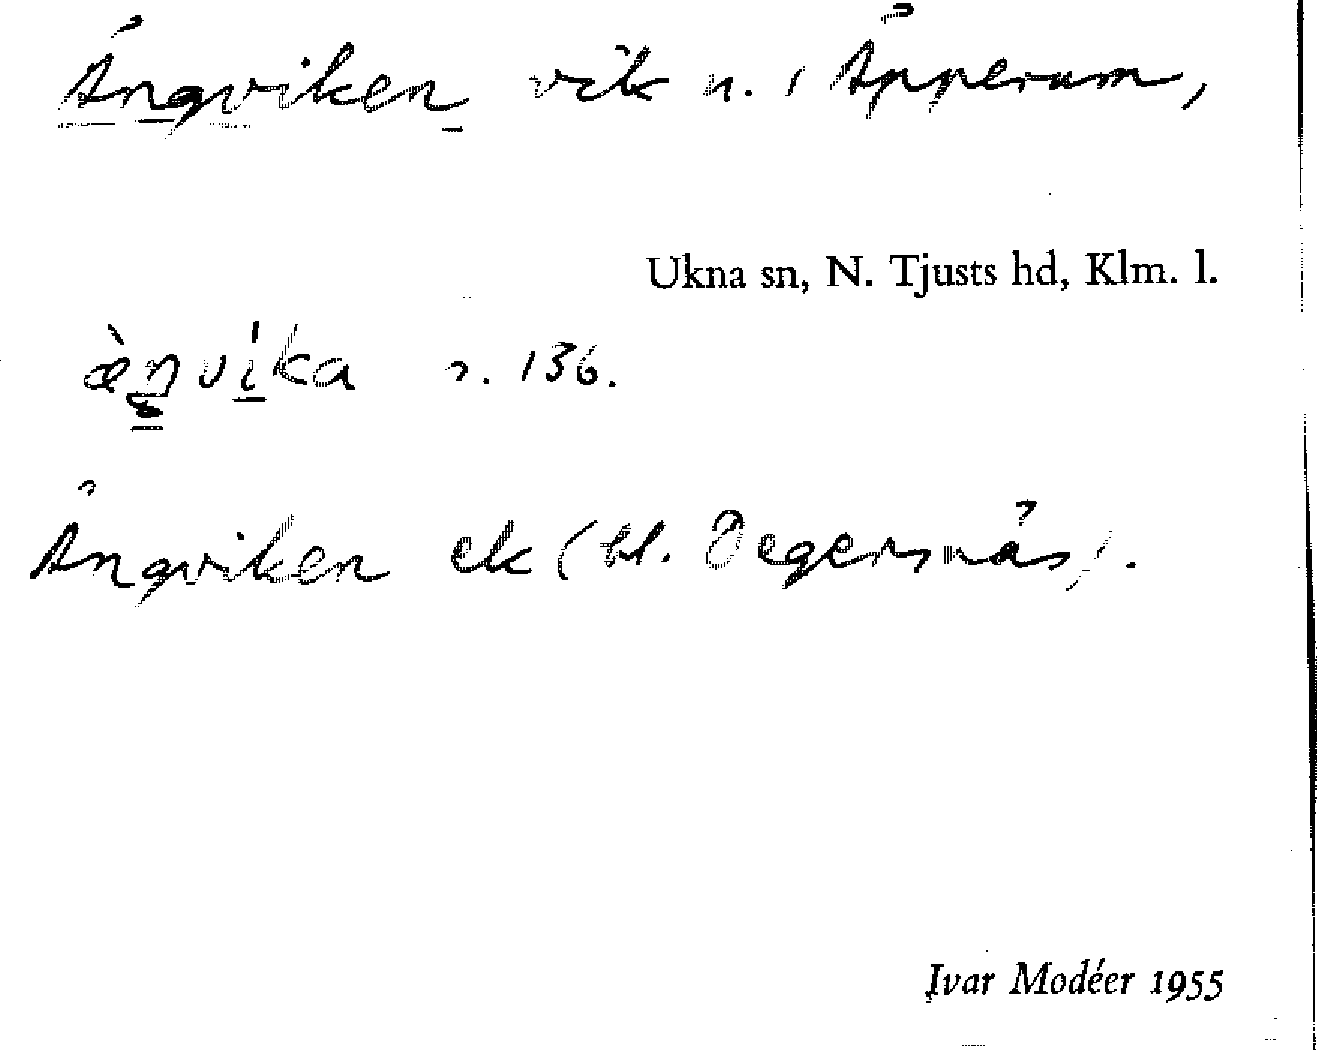 Ängviken vik n. i Äpperum,
Ukna sn, N. Tjusts hd, Klm. l.
æ̀ŋvi̇́ka s. 136.
Ängviken ek (bl. Degersnäs).
Ivar Modéer 1955